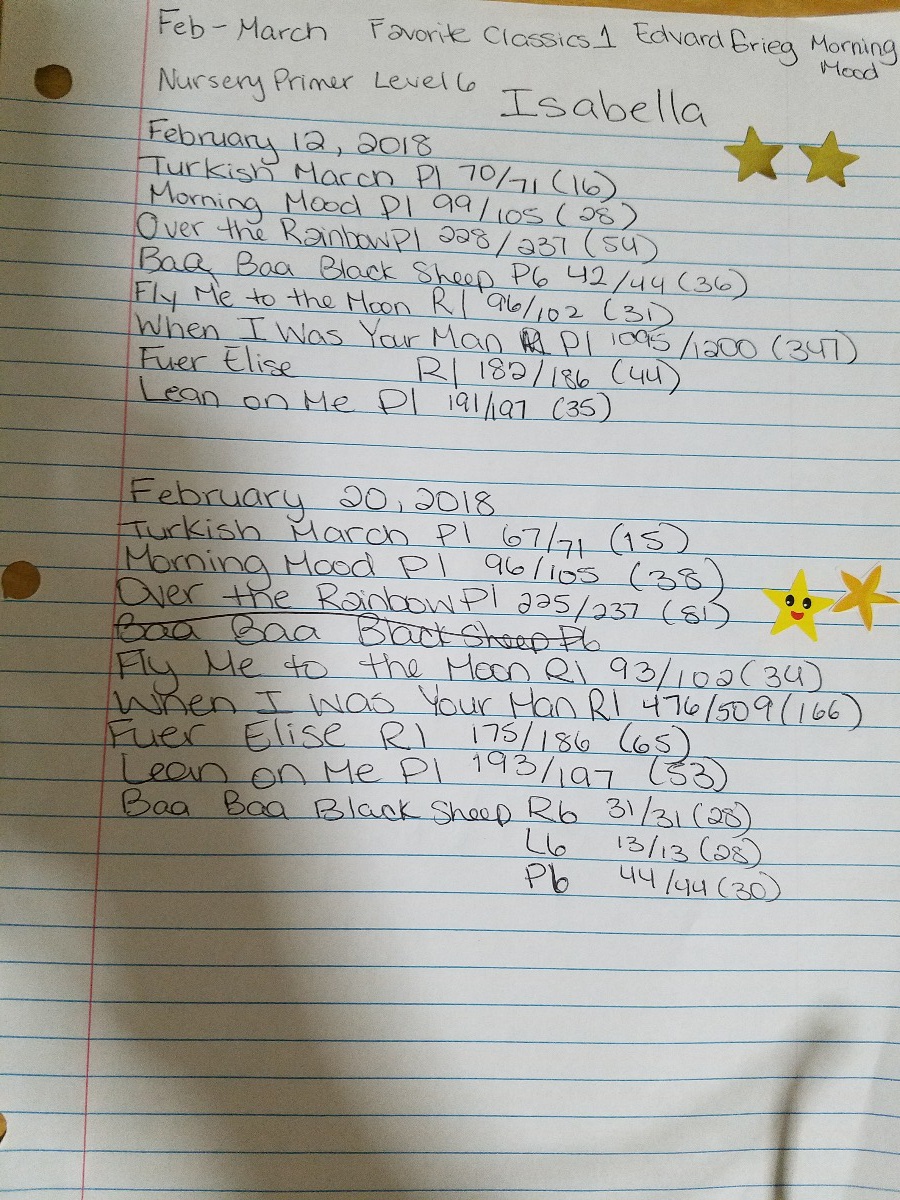 Feb - March Favorite Classics 1 Edvard Grieg Morning Mood
Nursery Primer Level 6
Isabella
February 12, 2018
Turkish March P1 70/71 (16)
Morning Mood P1 99/105 (28)
Over the Rainbow P1 228/237 (54)
Baa Baa Black Sheep P6 42/44 (36)
Fly Me to the Moon R1 96/102 (31)
When I Was Your Man P1 1095/1200 (347)
Fuer Elise R1 182/186 (44)
Lean on Me P1 191/197 (35)
February 20, 2018
Turkish March P1 67/71 (15)
Morning Mood P1 96/105 (38)
Over the Rainbow P1 225/237 (81)
Baa Baa Black Sheep P6
Fly Me to the Moon R1 93/102 (34)
When I Was Your Man R1 476/509 (166)
Fuer Elise R1 175/186 (65)
Lean on Me P1 193/197 (53)
Baa Baa Black Sheep R6 31/31 (28)
L6 13/13 (28)
P6 44/44 (30)